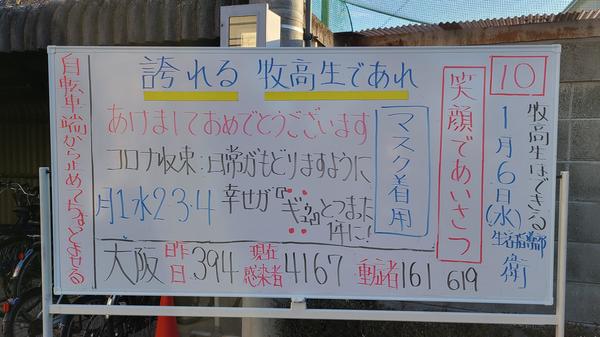 誇れる 牧高生であれ
10
牧高生はできる
1月6日(水)
生活指導部 衛
笑顔であいさつ
マスク着用
あけましておめでとうございます
コロナ収束:日常がもどりますように
月1水2・3・4
幸せが『ギュウ』とつまった
1年に!
大阪 昨日394 現在感染者4167 重症者161 619
自転車端から止めて